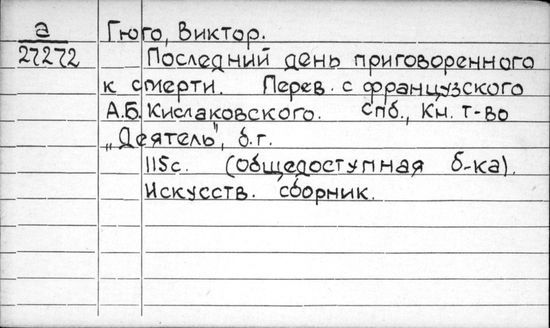 а Гюго, Виктор.
27272 Последний день приговоренного
к смерти. Перев. с французского
А.Б. Кислаковского. Спб., Кн. т-во
„Деятель", б.г.
115с. (Общедоступная б-ка).
Искусств. сборник.